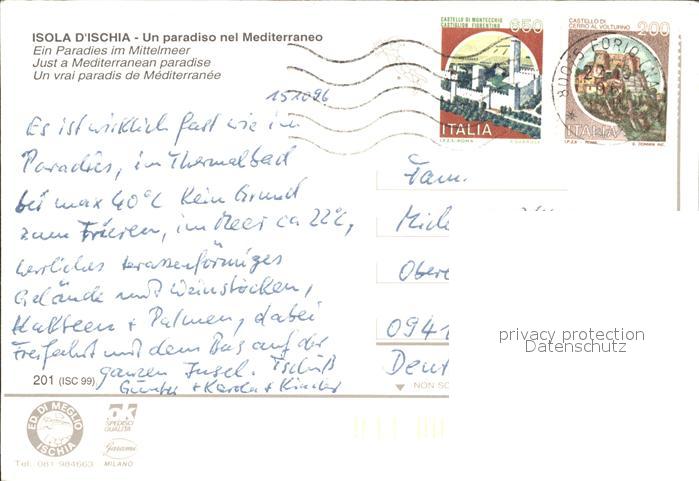 ISOLA D'ISCHIA - Un paradiso nel Mediterraneo
Ein Paradies im Mittelmeer
Just a Mediterranean paradise
Un vrai paradis de Méditerranée
CASTELLO DI MONTECCHIO
CASTIGLION FIORENTINO
650
ITALIA
I.P.Z.S. - ROMA
CASTELLO DI
CERRO AL VOLTURNO
200
ITALIA
I.P.Z.S. - ROMA
80075 FORIO
15.10.96
Es ist wirklich fast wie im
Paradies, im Thermalbad
bei max 40°C Kein Grund
zum Frieren, im Meer ca 22°C,
herrliches terassenförmiges
Gelände mit Weinstöcken,
Kakteen + Palmen, dabei
Freifahrt mit dem Bus auf der
ganzen Insel. Tschüß
Günter + Karola + Kinder
Fam.
Mich
Ober
0941
Deut
privacy protection
Datenschutz
201 (ISC 99)
NON SC
ED. DI MEGLIO
ISCHIA
Tel. 081 984663
ok
SPEDISCI
QUALITÀ
Garami
MILANO